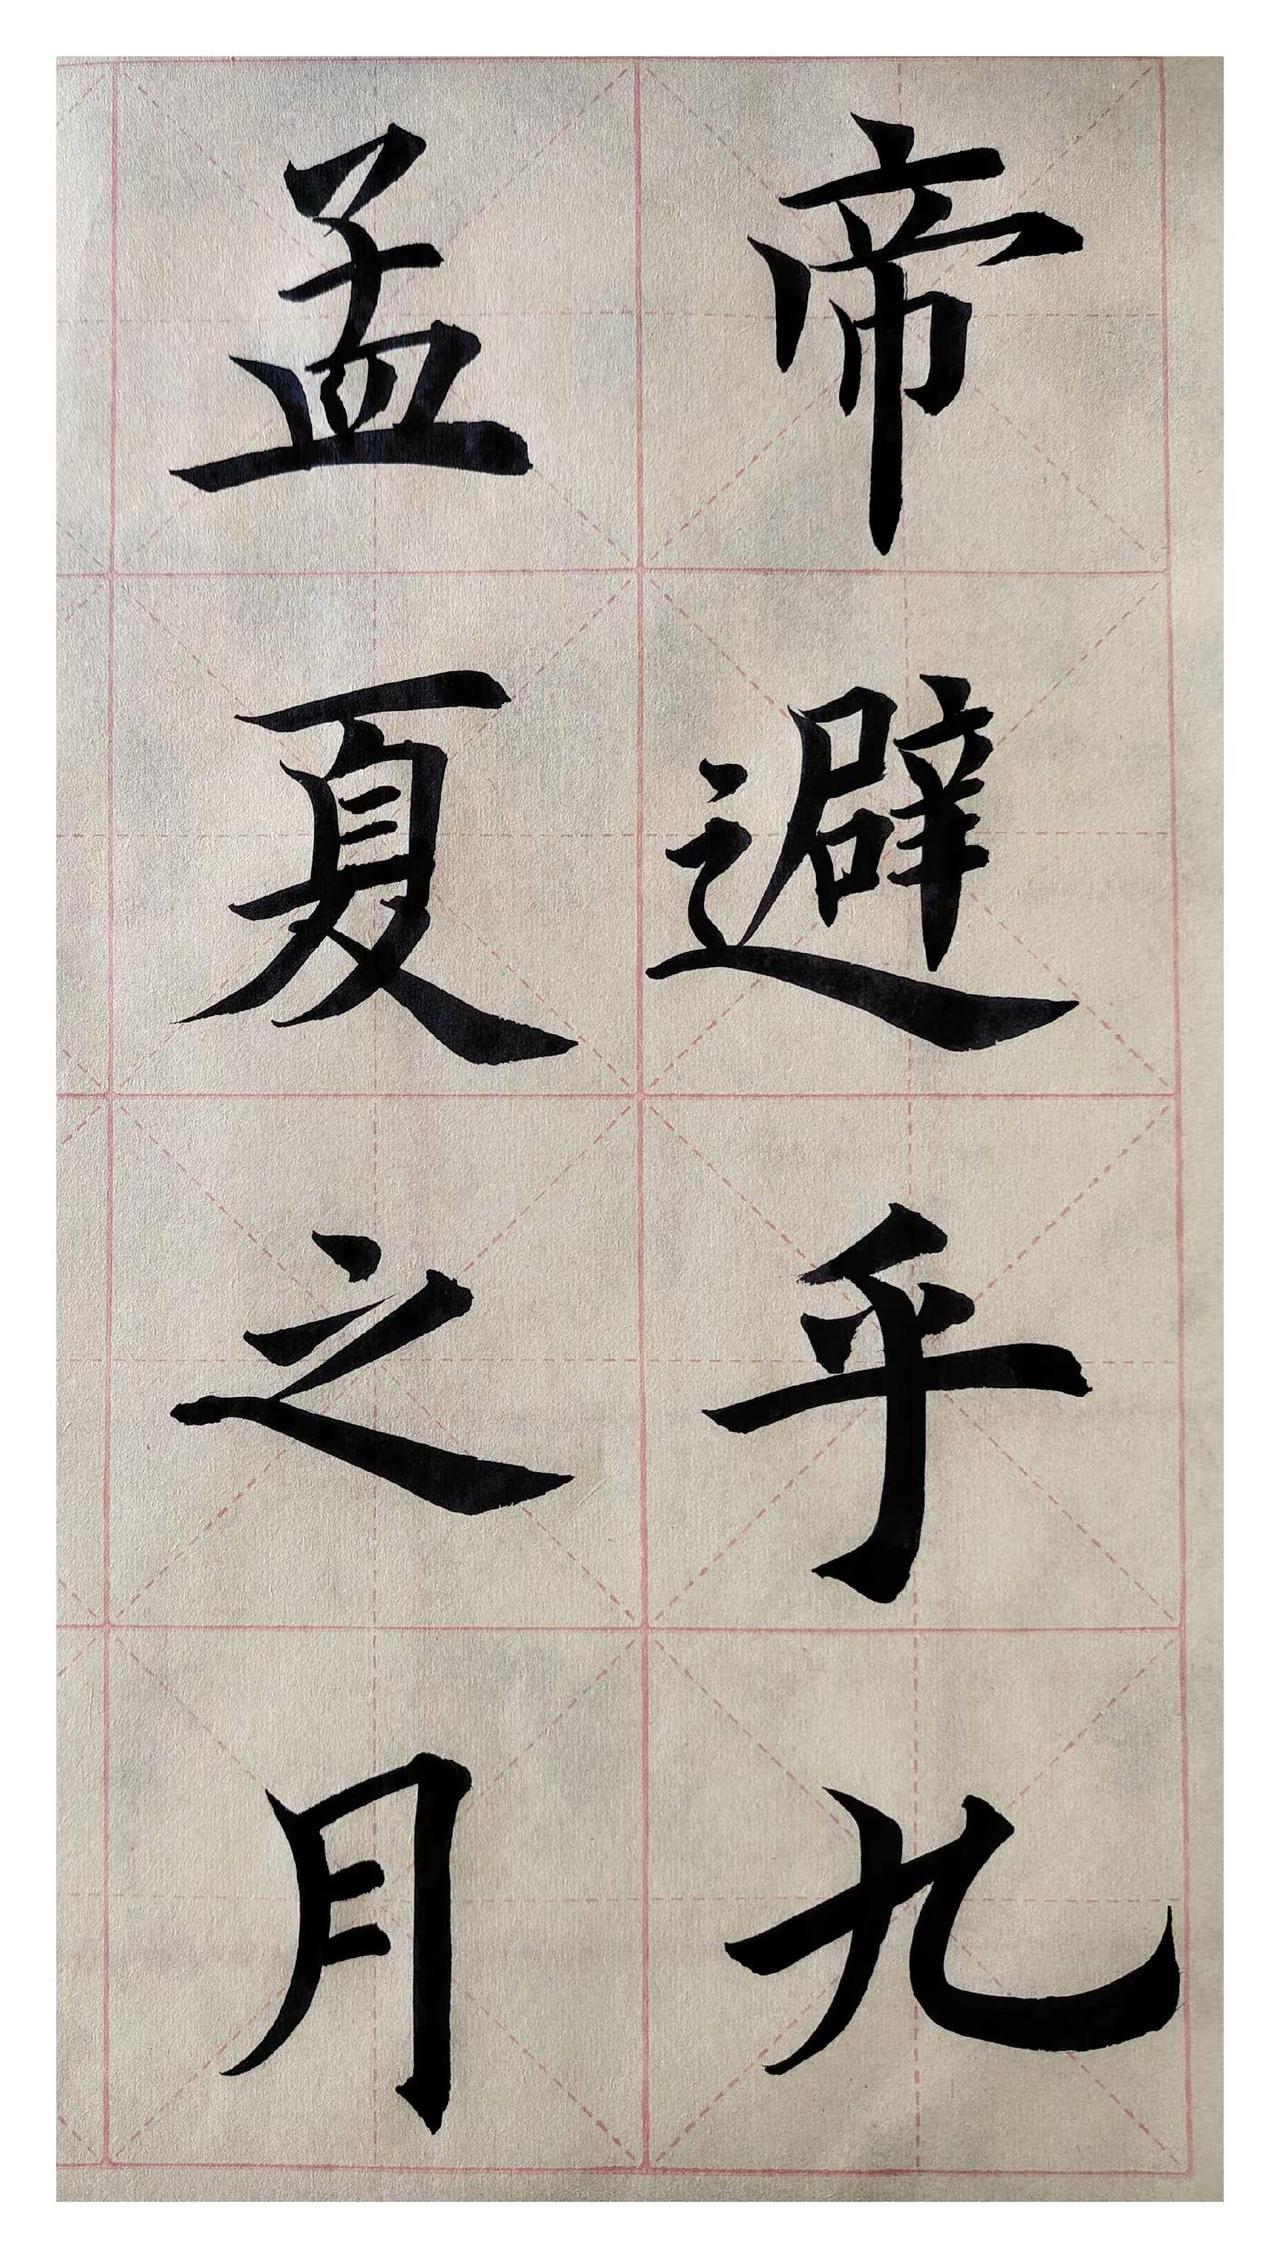 帝避乎九
孟夏之月